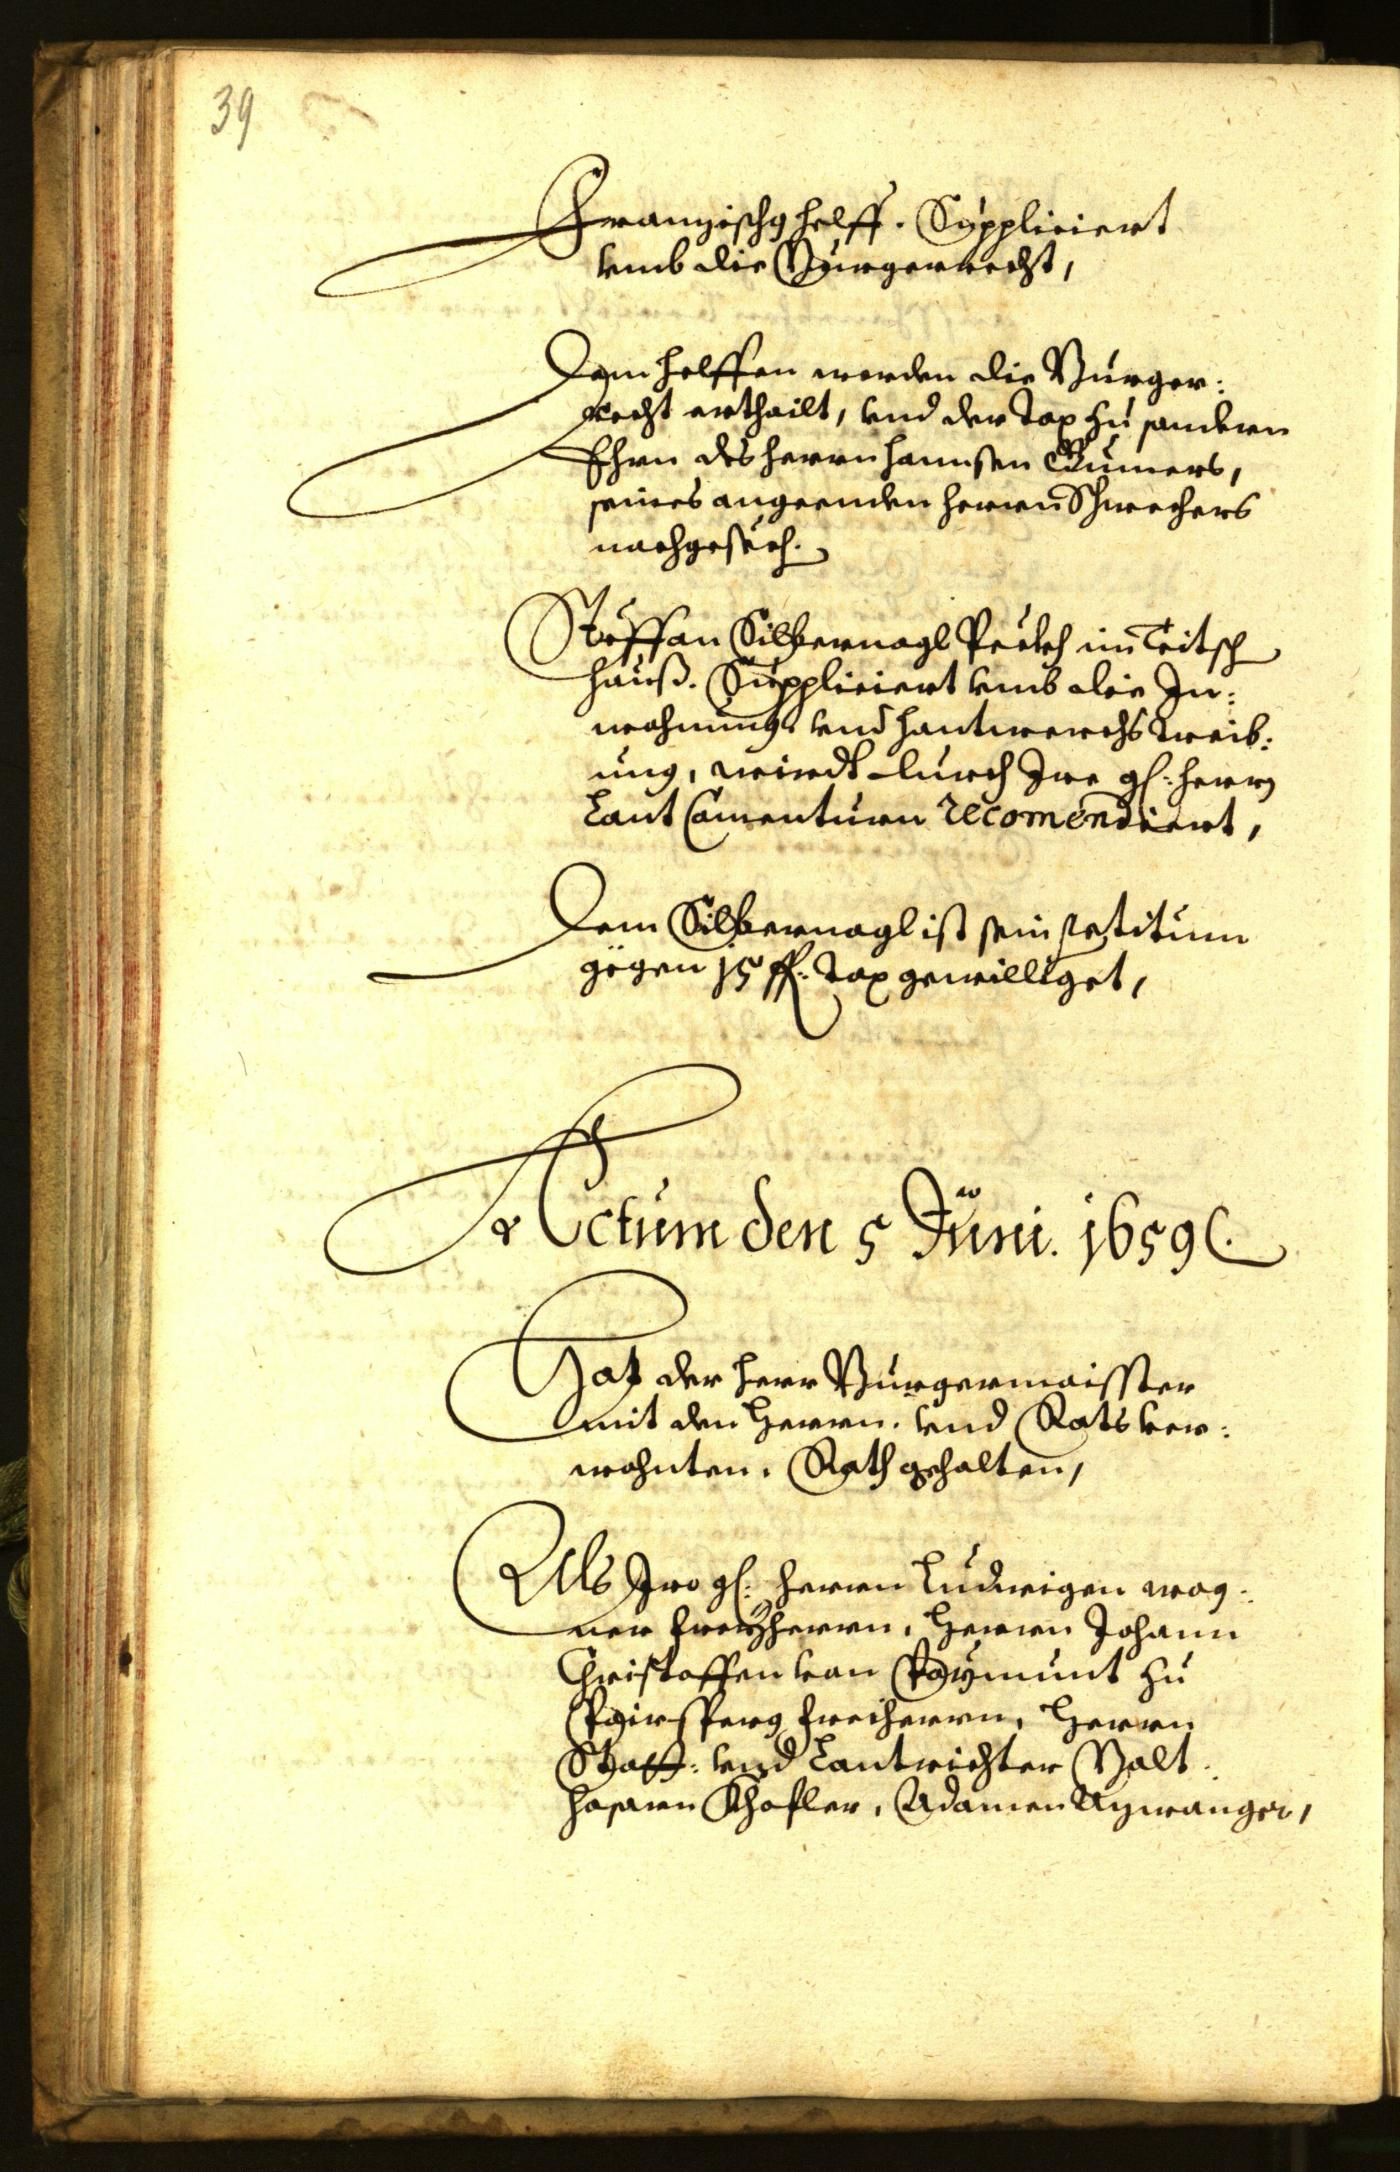 39
Franzischg Helff. Suppliciert
vmb die Burgerrecht,
Dem Helffen werden die Burger:
recht erthailt, vnd der Tax zu sondern
Ehrn des herrn Hannsen Gumers,
seines angeenden herrn Schwechers
nachgesech.
Steffan Silbernagl Peckh im Teitsch
hauß. Suppliciert vmb die In:
wohnung. vnd hantwerchs Treib:
ung, wirdt durch Ire gl: herrn
Lant Comenturn recomendiert,
Dem Silbernagl ist sein petitum
gegen 15 fl: Tax gewilliget,
Actum den 5 Juni. 1659.
Hat der Herr Burgermaister
mit den Herrn. vnd Rats ver:
wohnten. Rath gehalten,
Als Iro gl: Herrn Ludwigen wag:
ner freyherrn, Herrn Johann
Christoffen von Payrmunt zu
Pairsperg freiherrn, Herrn
Statt: vnd Lantrichter Balt:
hasarn Khofler, Adamen